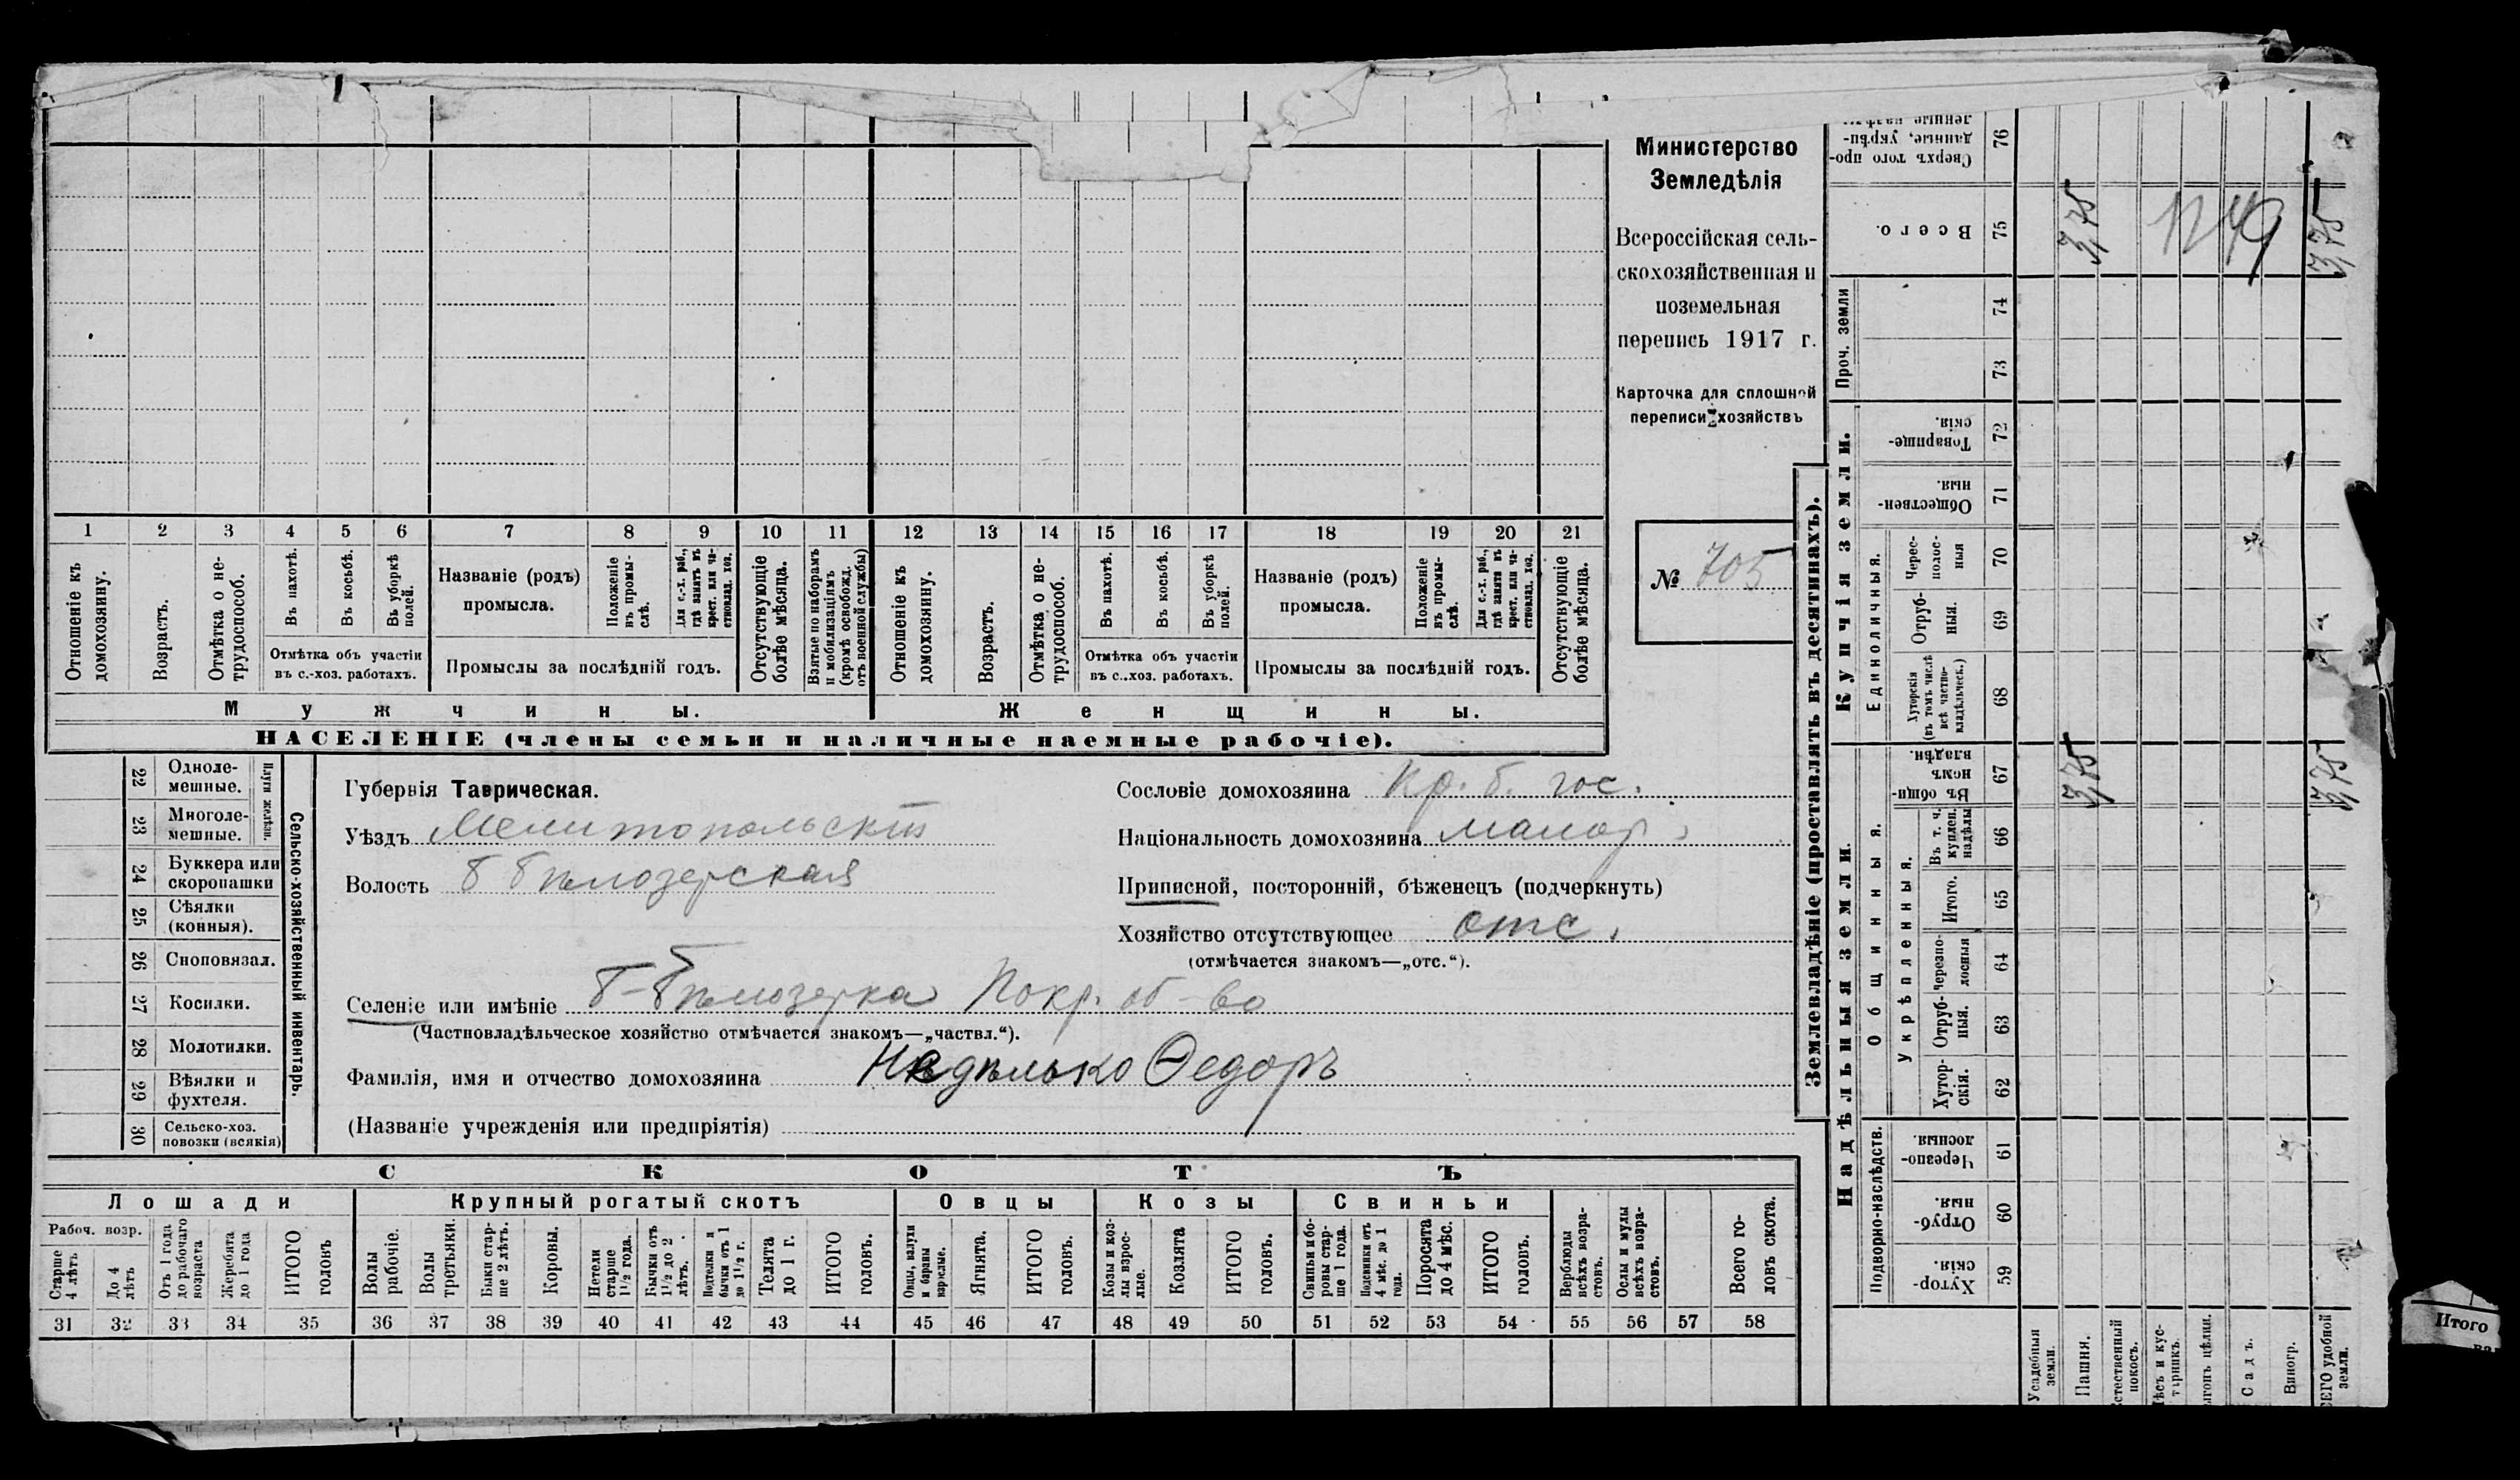 Министерство
Земледѣлія
Всероссійская сель-
скохозяйственная и
поземельная
перепись 1917 г.
Карточка для сплошной
переписи хозяйствъ
№ 705
1 2 3 4 5 6 7 8 9 10 11 12 13 14 15 16 17 18 19 20 21
Отношеніе къ домохозяину.
Возрастъ.
Отмѣтка о не-трудоспособ.
Въ пахотѣ.
Въ косьбѣ.
Въ уборкѣ полей.
Отмѣтка объ участіи
въ с.-хоз. работахъ.
Названіе (родъ)
промысла.
Положеніе въ промы-слѣ.
Для с.-х. раб., гдѣ занятъ въ крест. или ча-стновлад. хоз.
Промыслы за послѣдній годъ.
Отсутствующіе болѣе мѣсяца.
Взятые по наборамъ и мобилизаціямъ (кромѣ освобожд. отъ военной службы)
Отношеніе къ домохозяину.
Возрастъ.
Отмѣтка о не-трудоспособ.
Въ пахотѣ.
Въ косьбѣ.
Въ уборкѣ полей.
Отмѣтка объ участіи
въ с.-хоз. работахъ.
Названіе (родъ)
промысла.
Положеніе въ промы-слѣ.
Для с.-х. раб., гдѣ занята въ крест. или ча-стновлад. хоз.
Промыслы за послѣдній годъ.
Отсутствующіе болѣе мѣсяца.
Мужчины.
Женщины.
НАСЕЛЕНІЕ (члены семьи и наличные наемные рабочіе).
Сельско-хозяйственный инвентарь.
Плуги желѣзн.
22 Одноле-мешные.
23 Многоле-мешные.
24 Буккера или скоропашки
25 Сѣялки (конныя).
26 Сноповязал.
27 Косилки.
28 Молотилки.
29 Вѣялки и фухтеля.
30 Сельско-хоз. повозки (всякія)
Губернія Таврическая.
Уѣздъ Мелитопольскій
Волость Б Бѣлозерская
Селеніе или имѣніе Б-Бѣлозерка Покр. об-во
(Частновладѣльческое хозяйство отмѣчается знакомъ—„частвл.“).
Фамилія, имя и отчество домохозяина Недѣлько Ѳедоръ
(Названіе учрежденія или предпріятія)
Сословіе домохозяина Кр. б. гос.
Національность домохозяина малор.
Приписной, посторонній, бѣженецъ (подчеркнуть)
Хозяйство отсутствующее отс.
(отмѣчается знакомъ—„отс.“).
СКОТЪ
Лошади
Крупный рогатый скотъ
Овцы
Козы
Свиньи
Рабоч. возр.
Старше 4 лѣтъ
До 4 лѣтъ
Отъ 1 года до рабочаго возраста
Жеребята до 1 года
ИТОГО головъ
Волы рабочіе.
Волы третьяки.
Быки стар-ше 2 лѣтъ.
Коровы.
Нетели старше 1 1/2 года.
Бычки отъ 1 1/2 до 2 лѣтъ.
Подтелки и бычки отъ 1 до 1 1/2 г.
Телята до 1 г.
ИТОГО головъ.
Овцы, валухи и бараны взрослые.
Ягнята.
ИТОГО головъ.
Козы и коз-лы взрос-лые.
Козлята
ИТОГО головъ.
Свиньи и бо-ровы стар-ше 1 года.
Подсвинки отъ 4 мѣс. до 1 года.
Поросята до 4 мѣс.
ИТОГО головъ.
Верблюды всѣхъ возра-стовъ.
Ослы и мулы всѣхъ возра-стовъ.
Всего го-ловъ скота.
31 32 33 34 35 36 37 38 39 40 41 42 43 44 45 46 47 48 49 50 51 52 53 54 55 56 57 58
Землевладѣніе (проставлять въ десятинахъ).
Надѣльныя земли.
Купчія земли.
Проч. земли
Подворно-наслѣдств.
Общинныя.
Укрѣпленныя.
Единоличныя.
Хутор-скія. 59
Отруб-ныя. 60
Черезпо-лосныя 61
Хутор-скія. 62
Отруб-ныя. 63
черезпо-лосныя 64
Итого. 65
Въ т. ч. куплен. надѣлы 66
Въ общи-номъ владѣн. 67
Хуторскія (въ томъ числѣ всѣ частно-владѣльческ.) 68
Отруб-ныя. 69
Черес-полос-ныя 70
Обществен-ныя. 71
Товарище-скія. 72
73
74
Всего. 75
Сверхъ того про-данные, укрѣп-ленные надѣлы 76
Усадебныя земли.
Пашня. 3,75 3,75
Естественный покосъ.
Лѣсъ и кус-тарникъ.
Садъ.
Виногр.
ВСЕГО удобной земли. 3,75 3,75
Итого